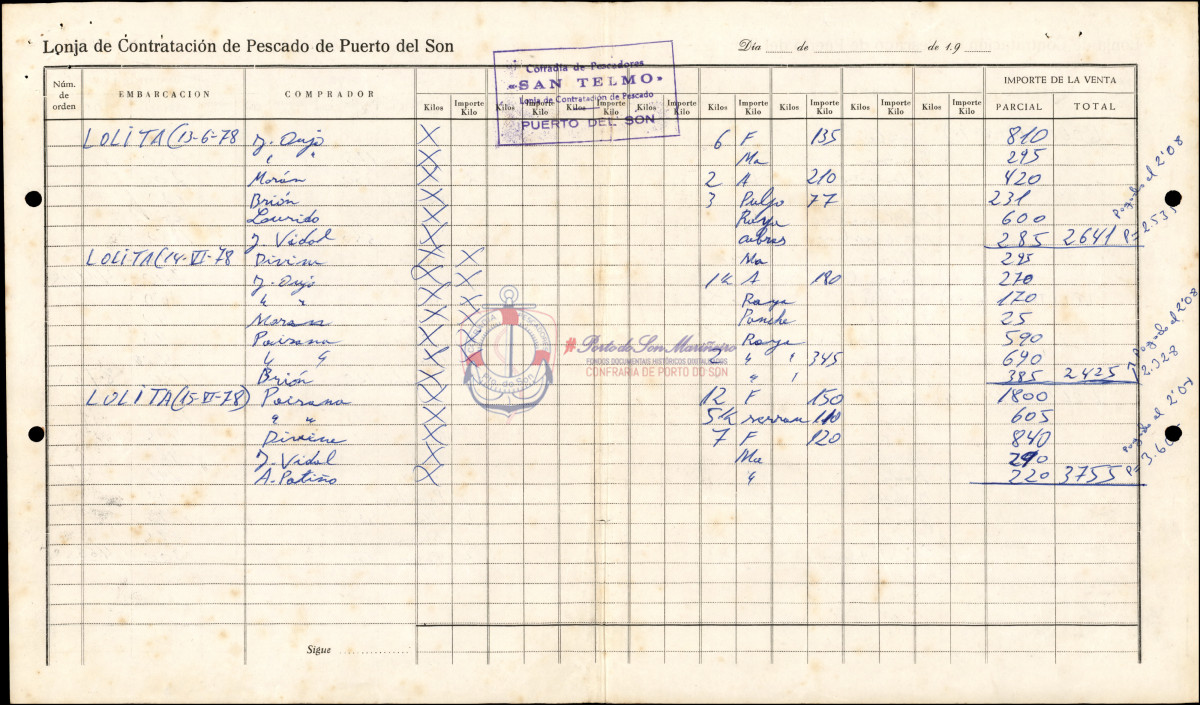 Lonja de Contratación de Pescado de Puerto del Son
Día ...... de ............ de 19 ......
Cofradía de Pescadores
"SAN TELMO"
Lonja de Contratación de Pescado
PUERTO DEL SON
Núm. de orden EMBARCACION COMPRADOR Kilos Importe Kilo Kilos Importe Kilo Kilos Importe Kilo Kilos Importe Kilo Kilos Importe Kilo Kilos Importe Kilo Kilos Importe Kilo Kilos Importe Kilo IMPORTE DE LA VENTA PARCIAL TOTAL
LOLITA (13-6-78 X 6 F 135 810
" " X Ma 295
Morán X 2 A 210 420
Brión X 3 Pulpo 77 231
Lourido X Raya 600
J. Vidal X 285 2641
LOLITA (14-VI-78 X X Ma 295
X A 180 270
" " X X Raya 170
Moran X X 25
X X Raya 590
" " X X " " 345 690
Brión X " 385 2425
LOLITA (15-VI-78) X 12 F 150 1800
" " X 5 1/2 110 605
X 7 F 120 840
J. Vidal X Ma 290
A. Patiño X " 220 3755
Pagado al 2'08
Pagado al 2'08
2.328
Pagado al 2'07
# Porto do Son Mariñeiro
FONDOS DOCUMENTAIS HISTÓRICOS DIXITALIZADOS
CONFRARIA DE PORTO DO SON
Sigue ............